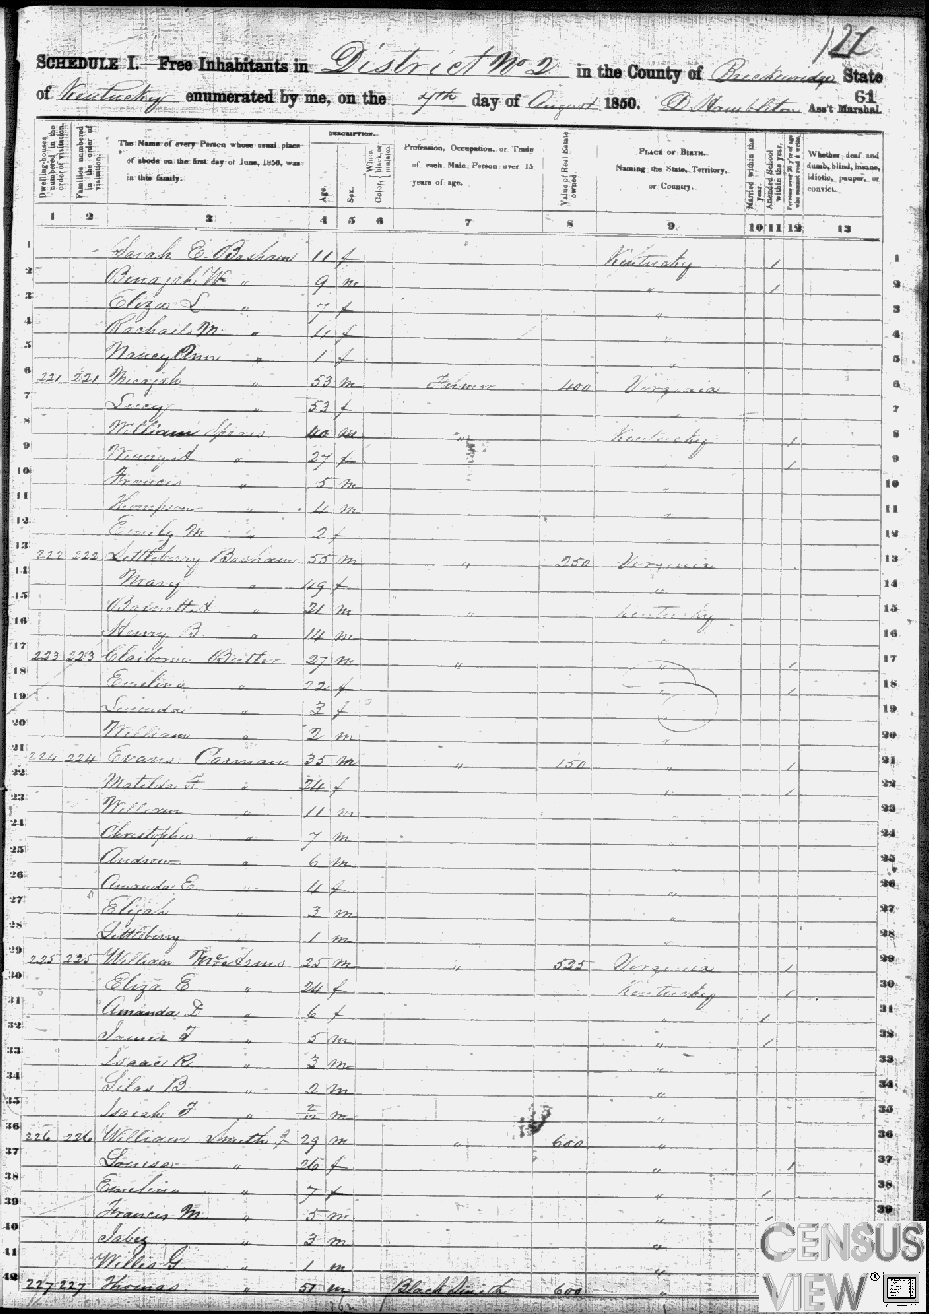 127
SCHEDULE I.—Free Inhabitants in District No 2 in the County of Breckenridge State
of Kentucky enumerated by me, on the 7th day of August 1850. D Hamblton Ass't Marshal. 61
Dwelling-houses numbered in the order of visitation. Families numbered in the order of visitation. The Name of every Person whose usual place of abode on the first day of June, 1850, was in this family. DESCRIPTION. Age. Sex. Color, White, black, or mulatto. Profession, Occupation, or Trade of each Male Person over 15 years of age. Value of Real Estate owned. PLACE OF BIRTH. Naming the State, Territory, or Country. Married within the year. Attended School within the year. Persons over 20 y'rs of age who cannot read & write. Whether deaf and dumb, blind, insane, idiotic, pauper, or convict.
1 2 3 4 5 6 7 8 9. 10 11 12 13
1 Sarah E. Basham 11 f Kentucky 1 1
2 W " 9 m " 1 2
3 Eliza L " 7 f " 3
4 Rachael M " 4 f " 4
5 Nancy Ann " 1 f " 5
6 221 221 " 53 m Farmer 400 Virginia 6
7 Lucy " 53 f " 7
8 William Spires 40 m " Kentucky 1 8
9 Nancy A " 27 f 1 9
10 Francis " 5 m " 10
11 Thompson " 4 m " 11
12 Emily M " 2 f " 12
13 222 222 Littleberry Basham 55 m " 250 Virginia 13
14 Mary " 49 f " 14
15 A " 21 m " Kentucky 15
16 Henry B " 14 m " 16
17 223 223 Claiborne 27 m " " 1 17
18 Emeline " 22 f " 1 18
19 Lucinda " 3 f " 19
20 William " 2 m " 20
21 224 224 Evans Carman 35 m " 150 " 1 21
22 Matilda F " 24 f " 1 22
23 William " 11 m 23
24 Christopher " 7 m 24
25 Andrew " 6 m 25
26 Amanda E " 4 f " 26
27 Elijah " 3 m " 27
28 Littleberry " 1 m 28
29 225 225 William 25 m " 525 Virginia 1 29
30 Eliza E " 24 f Kentucky 1 30
31 Amanda " 6 f " 1 31
32 " 5 m " 1 32
33 Isaac R. " 3 m " 33
34 Silas B " 2 m " 34
35 Isaiah " 2/12 m " 35
36 226 226 William Smith 29 m " 600 " 36
37 Louisa " 26 f " 1 37
38 Emeline " 7 f " 1 38
39 Francis M " 5 m " 39
40 " 3 m "
41 Willis G " 1 m "
42 227 227 Thomas " 51 m Black Smith 600 "
CENSUS
VIEW